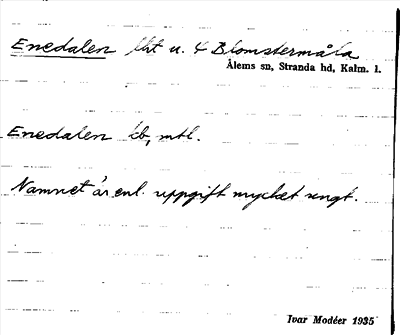 Enedalen lht u. 4 Blomstermåla
Ålems sn, Stranda hd, Kalm. l.
Enedalen kb, mtl.
Namnet är enl. uppgift mycket ungt.
Ivar Modéer 1935